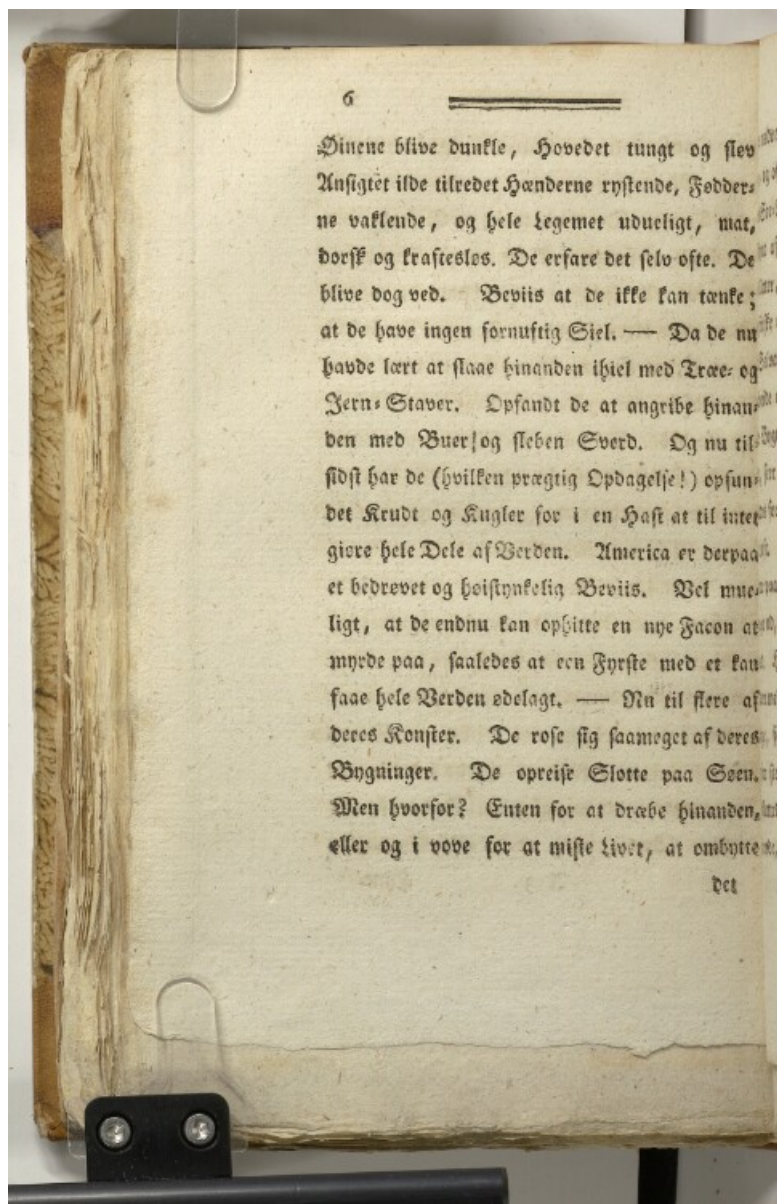 6
Øinene blive dunkle, Hovedet tungt og sløv
Ansigtet ilde tilredet Hænderne rystende, Fødder-
ne vaklende, og hele Legemet udueligt, mat,
dorsk og kraftesløs. De erfare det selv ofte. De
blive dog ved. Beviis at de ikke kan tænke;
at de have ingen fornuftig Siel. — Da de nu
havde lært at slaae hinanden ihiel med Træe- og
Jern-Staver. Opfandt de at angribe hinan-
den med Buer og sleben Sverd. Og nu til-
sidst har de (hvilken prægtig Opdagelse!) opfun-
det Krudt og Kugler for i en Hast at til intet
giøre hele Dele af Verden. America er derpaa
et bedrøvet og høistynkelig Beviis. Vel mue-
ligt, at de endnu kan ophitte en nye Facon at
myrde paa, saaledes at een Fyrste med et kan
faae hele Verden ødelagt. — Nu til flere af
deres Konster. De rose sig saameget af deres
Bygninger. De opreise Slotte paa Søen.
Men hvorfor? Enten for at dræbe hinanden,
eller og i vove for at miste Livet, at ombytte
det